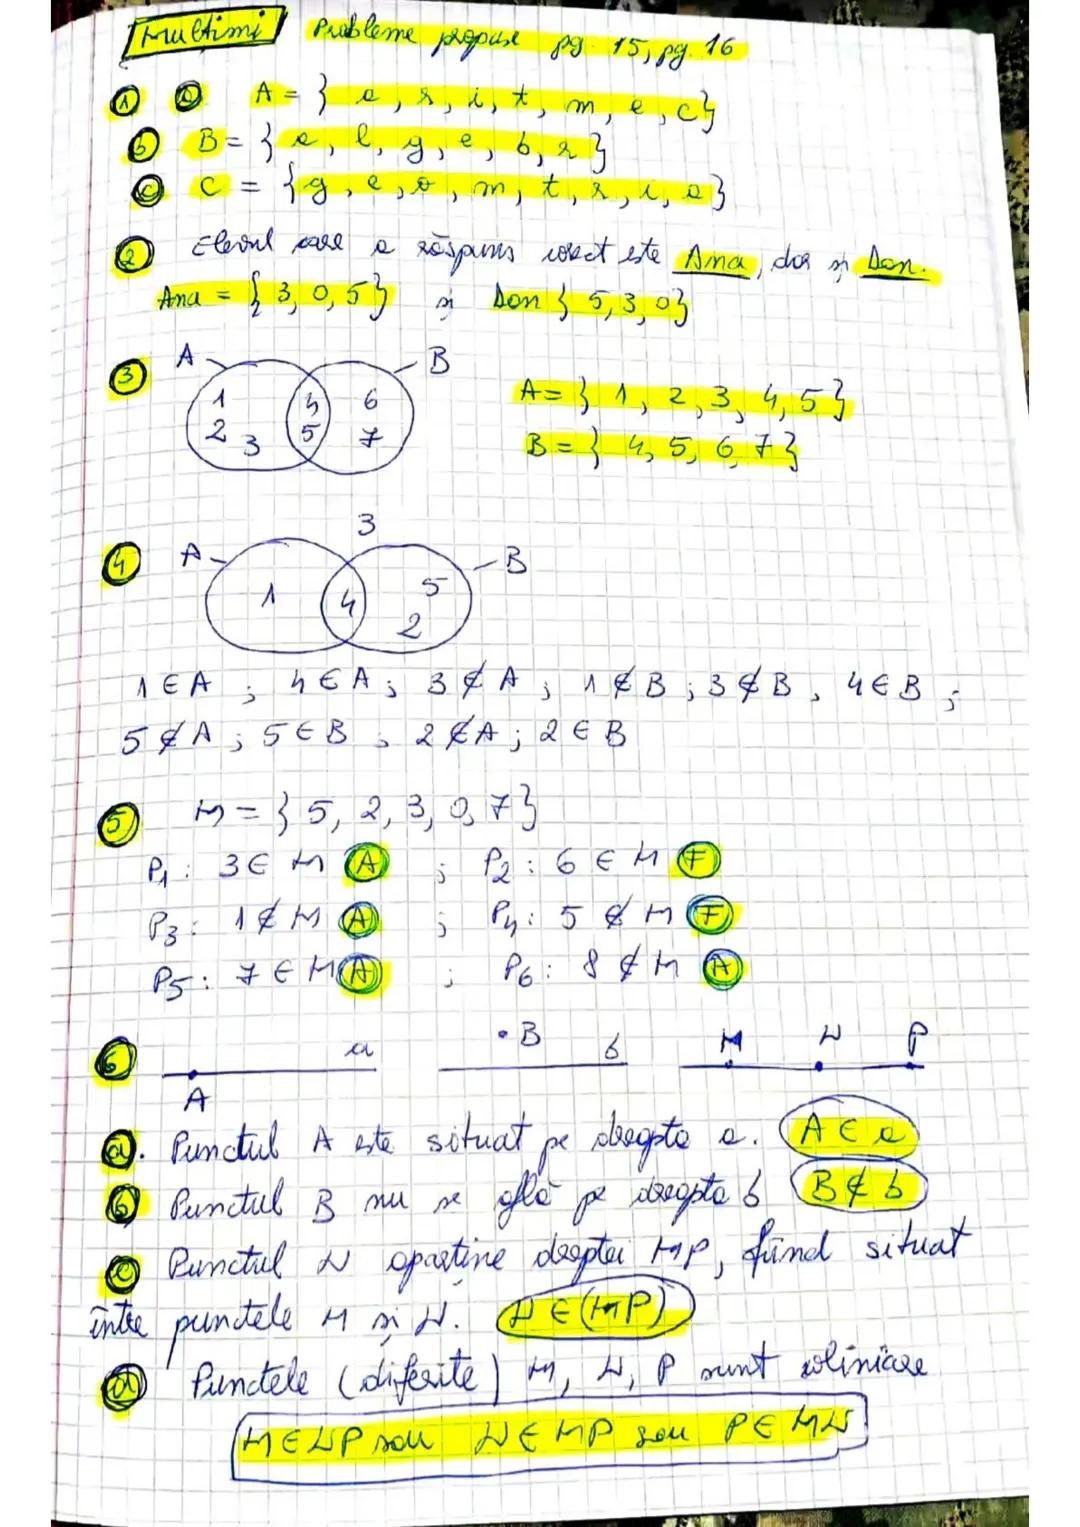 Mulțimi Probleme propuse pg. 15, pg. 16
1 a A = { a, r, i, t, m, e, c}
b B = { a, l, g, e, b, r }
c C = { g, e, o, m, t, r, i, a }
2 Elevul care a răspuns corect este Ana, dar și Dan.
Ana = { 3, 0, 5 } și Dan { 5, 3, 0 }
3 A B
1 4 6
2 3 5 7
A = { 1, 2, 3, 4, 5 }
B = { 4, 5, 6, 7 }
3
4 A B
1 4 5
2
1 ∈ A ; 4 ∈ A ; 3 ∉ A ; 1 ∉ B ; 3 ∉ B , 4 ∈ B ;
5 ∉ A ; 5 ∈ B , 2 ∉ A ; 2 ∈ B
5 M = { 5, 2, 3, 0, 7 }
P1 : 3 ∈ M A ; P2 : 6 ∈ M F
P3 : 1 ∉ M A ; P4 : 5 ∉ M F
P5 : 7 ∈ M A ; P6 : 8 ∉ M A
6 a B b M N P
A
a. Punctul A este situat pe dreapta a. A ∈ a
b Punctul B nu se află pe dreapta b B ∉ b
c Punctul N aparține dreptei MP, fiind situat
între punctele M și N. N ∈ (MP)
d Punctele (diferite) M, N, P sunt coliniare
M ∈ NP sau N ∈ MP sau P ∈ MN